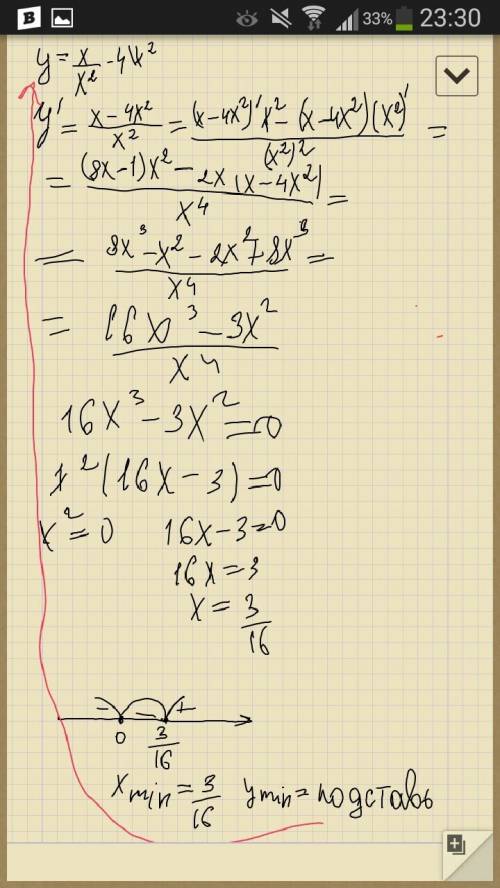 B 33% 23:30
y = x/x² - 4x²
y' = (x - 4x²)/x² = ((x - 4x²)'x² - (x - 4x²)(x²)')/(x²)² =
= ((8x - 1)x² - 2x(x - 4x²))/x⁴ =
= (8x³ - x² - 2x² + 8x³)/x⁴ =
= (16x³ - 3x²)/x⁴
16x³ - 3x² = 0
x²(16x - 3) = 0
x² = 0 16x - 3 = 0
16x = 3
x = 3/16
- - +
0 3/16
xmin = 3/16 ymin = подставь